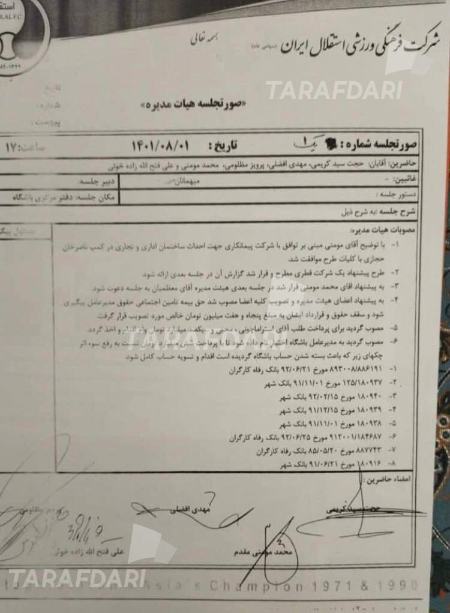 شرکت فرهنگی ورزشی استقلال ایران (سهامی عام)
بسمه تعالی
TARAFDARI
تاریخ
شماره
پیوست
«صورتجلسه هیات مدیره»
صورتجلسه شماره : یک ۱ تاریخ : ۱۴۰۱/۰۸/۰۱ ساعت: ۱۷
حاضرین: آقایان: حجت سید کریمی، مهدی افضلی، پرویز مظلومی، محمد مومنی و علی فتح الله زاده خوئی
غائبین: - میهمانان دبیر جلسه:
دستور جلسه : مکان جلسه: دفتر مرکزی باشگاه
شرح جلسه :به شرح ذیل
مصوبات هیات مدیره:
۱- با توضیح آقای مومنی مبنی بر توافق با شرکت پیمانکاری جهت احداث ساختمان اداری و تجاری در کمپ ناصرخان
حجازی با کلیات طرح موافقت شد.
۲- طرح پیشنهاد یک شرکت قطری مطرح و قرار شد گزارش آن در جلسه بعدی ارائه شود.
۳- به پیشنهاد آقای محمد مومنی قرار شد در جلسه بعدی هیئت مدیره آقای معظمیان به جلسه دعوت شود.
۴- به پیشنهاد اعضای هیئت مدیره و تصویب کلیه اعضا مصوب شد حق بیمه تامین اجتماعی حقوق مدیرعامل پیگیری
شود و سقف حقوق و قرارداد ایشان به مبلغ پنجاه و هفت میلیون تومان خالص مورد تصویب قرار گرفت.
۵- مصوب گردید برای پرداخت طلب آقای استراماچونی، مجیدی و یکصد میلیارد تومان وام اقدام و اخذ گردد.
۶- مصوب گردید به مدیرعامل باشگاه اختیار تام داده شود تا با پرداخت نسبت به رفع سوء اثر
چکهای زیر که باعث بسته شدن حساب باشگاه گردیده است اقدام و تسویه حساب کامل شود.
۱- ۸۹۳۰۰۸/۸۸۶۱۹۱ مورخ ۹۲/۰۶/۲۱ بانک رفاه کارگران
۲- ۱۲۵/۱۸۰۹۳۷ مورخ ۹۱/۱۱/۰۱ بانک شهر
۳- ۱۸۰۹۴۰ مورخ ۹۲/۰۲/۱۵ بانک شهر
۴- ۱۸۰۹۳۹ مورخ ۹۱/۱۲/۱۵ بانک شهر
۵- ۱۸۰۹۳۸ مورخ ۹۱/۱۱/۰۱ بانک شهر
۶- ۹۱۲۰۰۱/۱۸۴۶۸۷ مورخ ۹۲/۰۶/۲۵ بانک رفاه کارگران
۷- ۸۸۷۷۴۳ مورخ ۸۵/۰۵/۲۰ بانک رفاه کارگران
۸- ۱۸۰۹۱۶ مورخ ۹۱/۰۶/۲۱ بانک شهر
TARAFDARI
امضاء حاضرین :
حجت سید کریمی مهدی افضلی پرویز مظلومی
محمد مومنی مقدم علی فتح الله زاده خوئی
TARAFDARI
Asia's Champion 1971 & 1990